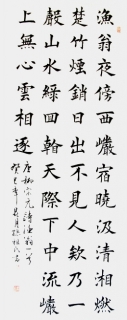 漁翁夜傍西巖宿曉汲清湘燃
楚竹煙銷日出不見人欸乃一
聲山水綠迴看天際下中流巖
上無心雲相逐
唐柳宗元詩漁翁一首